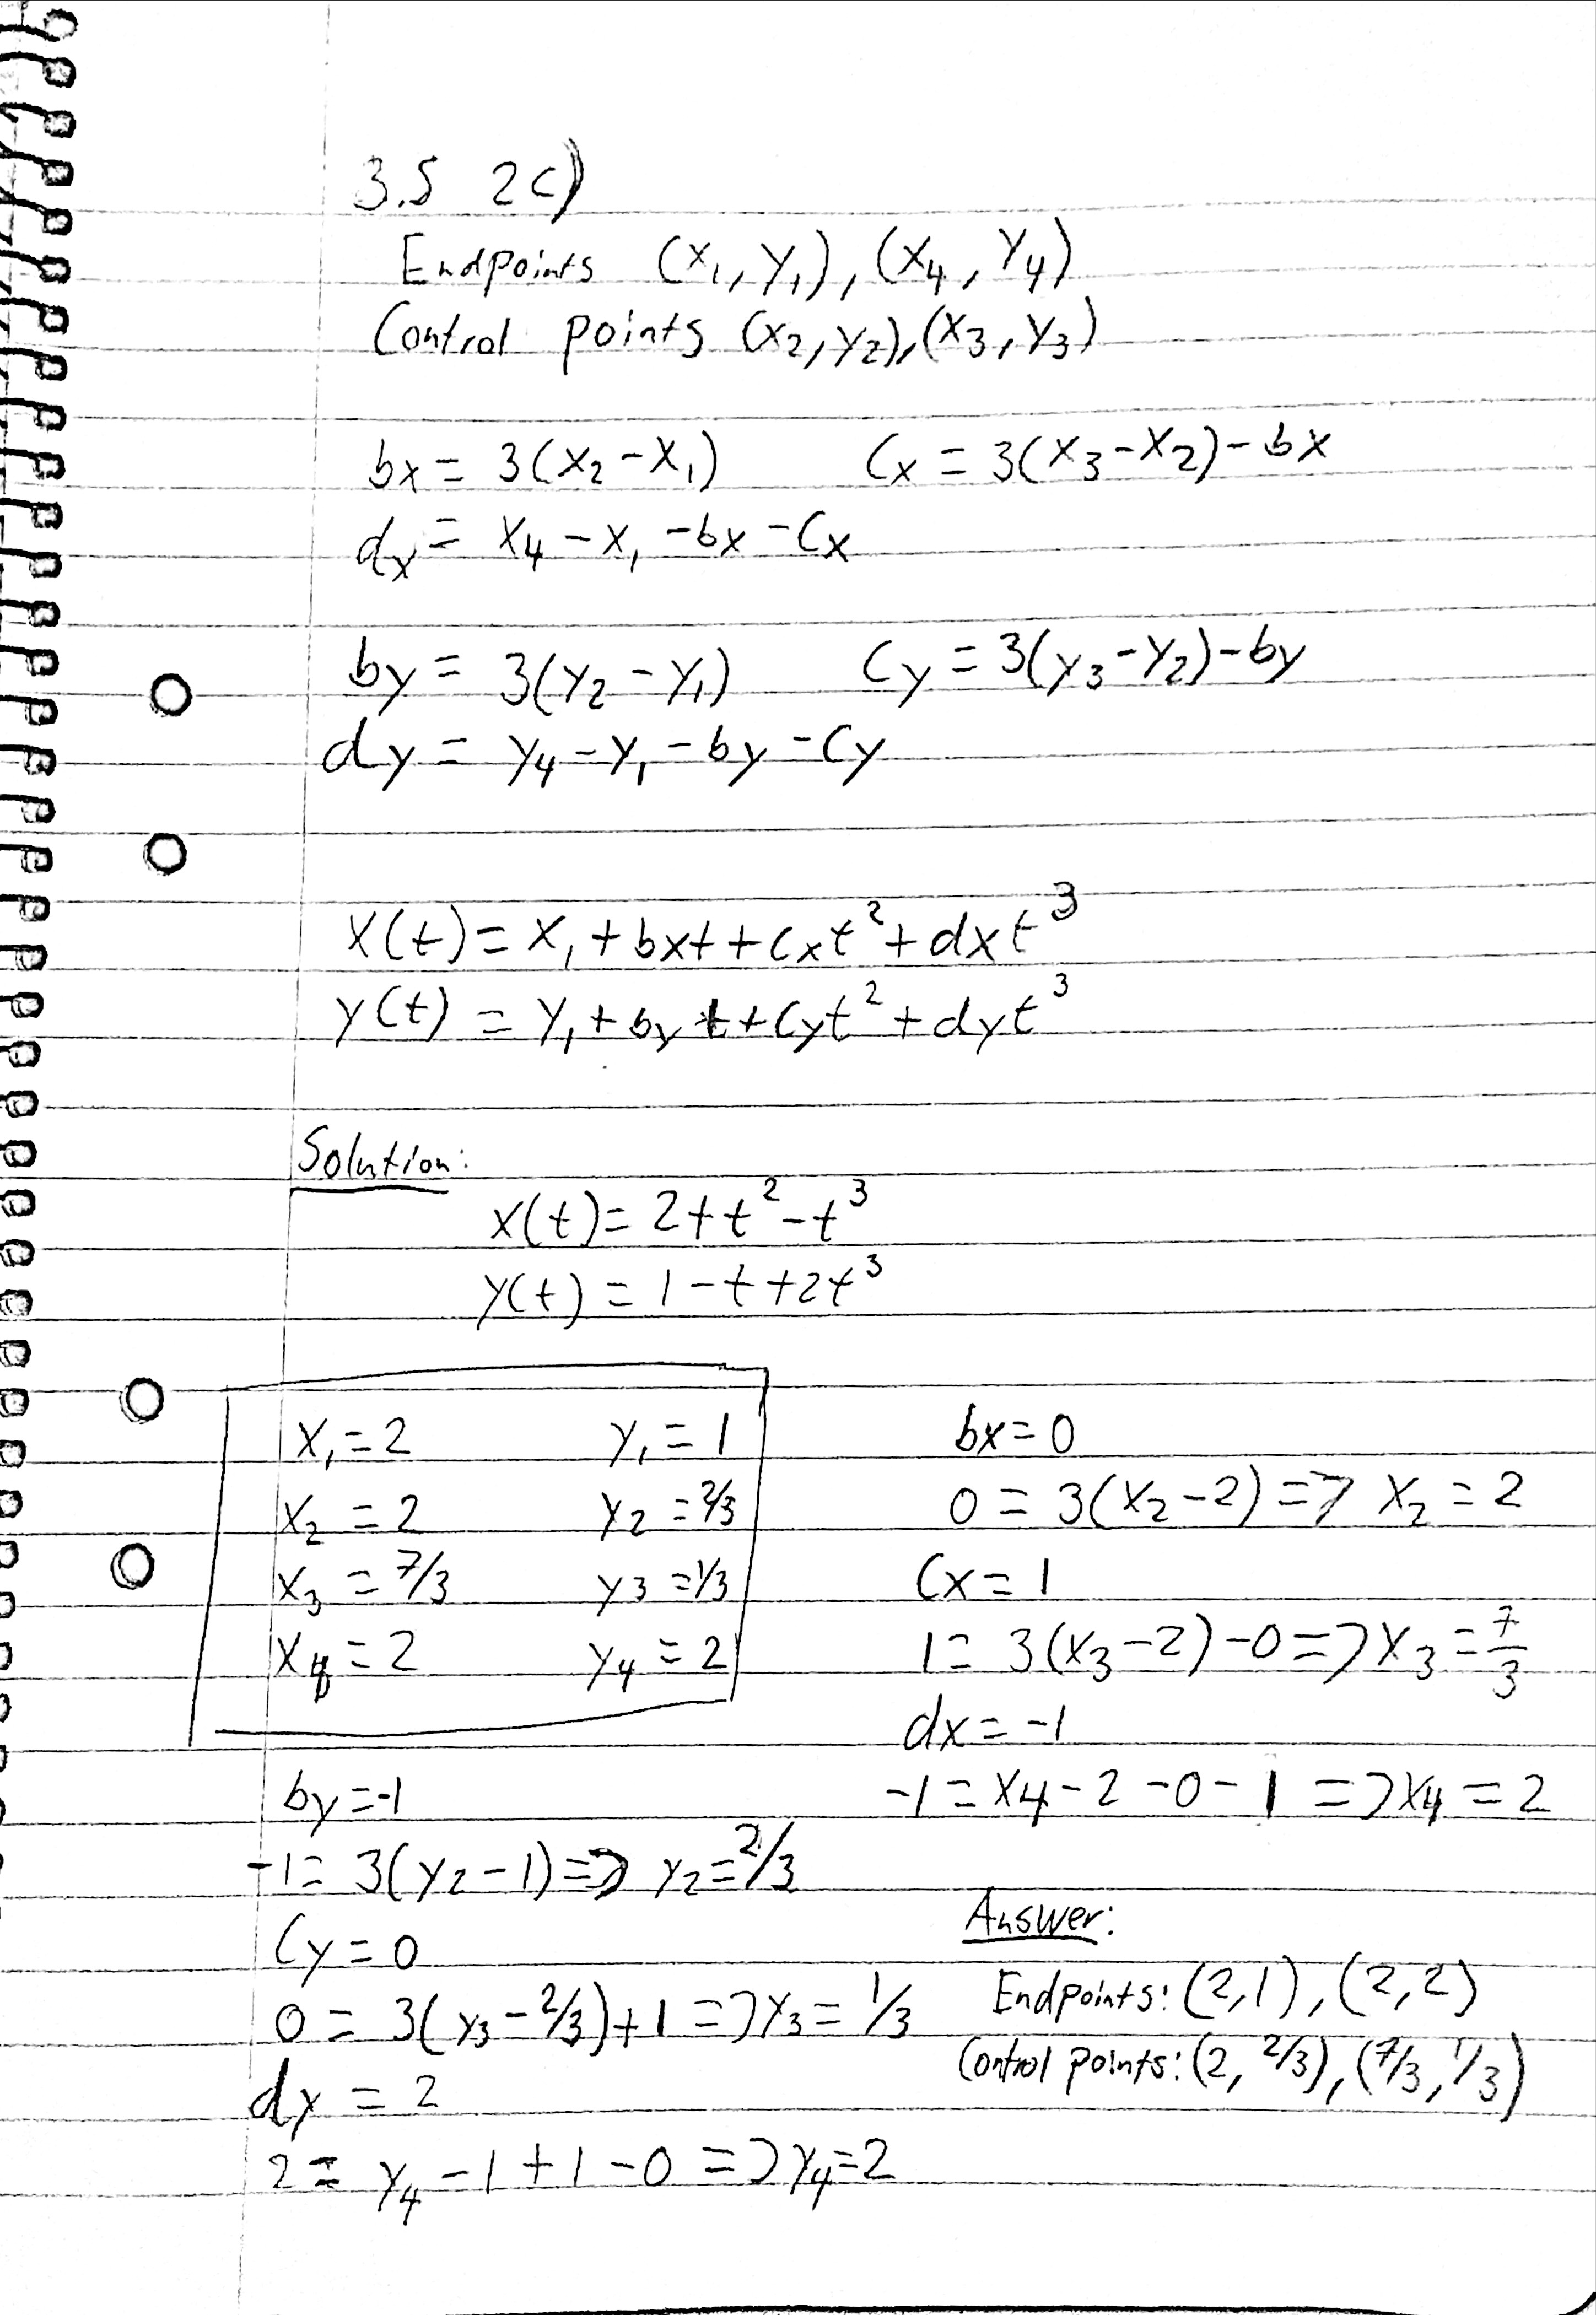 3.5 2c)
Endpoints (x₁, y₁), (x₄, y₄)
Control points (x₂, y₂), (x₃, y₃)
bx = 3(x₂ - x₁) Cx = 3(x₃ - x₂) - bx
dx = x₄ - x₁ - bx - Cx
by = 3(y₂ - y₁) Cy = 3(y₃ - y₂) - by
dy = y₄ - y₁ - by - Cy
x(t) = x₁ + bxt + Cxt² + dxt³
y(t) = y₁ + byt + Cyt² + dyt³
Solution:
x(t) = 2 + t² - t³
y(t) = 1 - t + 2t³
x₁ = 2 y₁ = 1
x₂ = 2 y₂ = 2/3
x₃ = 7/3 y₃ = 1/3
x₄ = 2 y₄ = 2
bx = 0
0 = 3(x₂ - 2) => x₂ = 2
Cx = 1
1 = 3(x₃ - 2) - 0 => x₃ = 7/3
dx = -1
-1 = x₄ - 2 - 0 - 1 => x₄ = 2
by = -1
-1 = 3(y₂ - 1) => y₂ = 2/3
Cy = 0
0 = 3(y₃ - 2/3) + 1 => y₃ = 1/3
dy = 2
2 = y₄ - 1 + 1 - 0 => y₄ = 2
Answer:
Endpoints: (2,1), (2,2)
Control points: (2, 2/3), (7/3, 1/3)